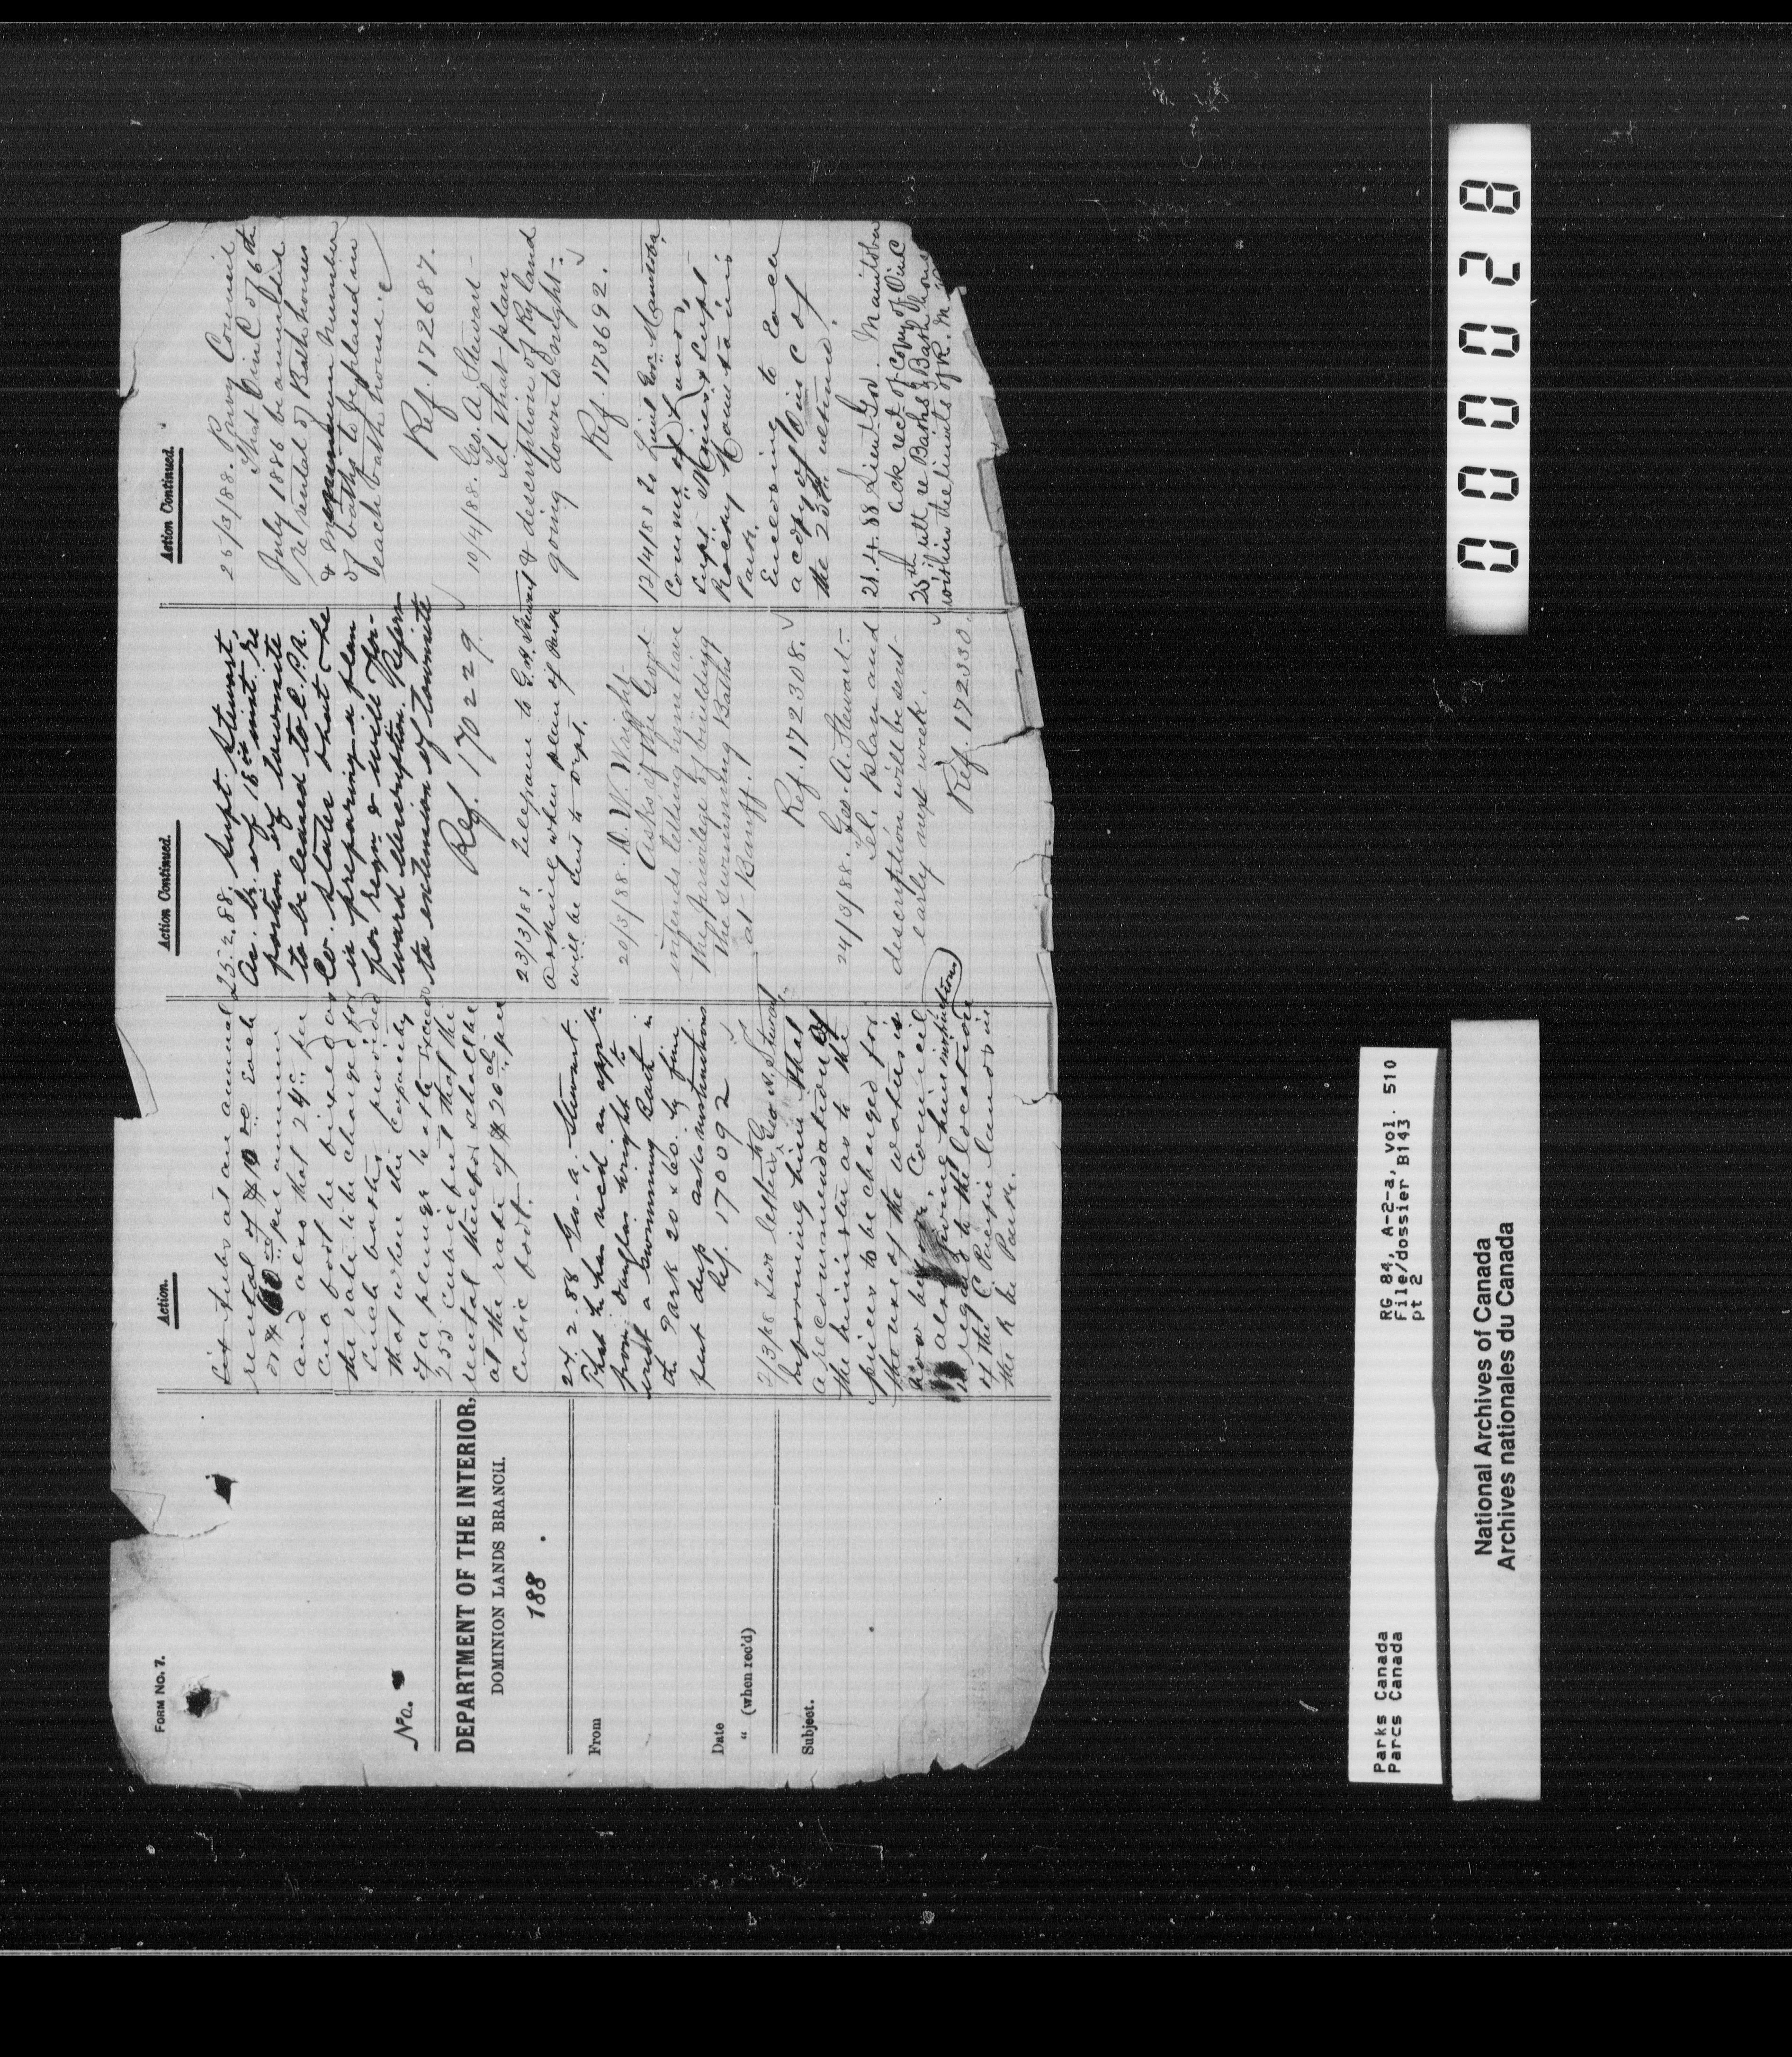 FORM No. 7.
No.
DEPARTMENT OF THE INTERIOR,
DOMINION LANDS BRANCH.
188 .
From
Date
“ (when rec'd)
Subject.
Action.
tubs at an annual
rental of $10 00 each
per annum
and also that 24 c. per
cub foot be fixed as
the rate to be charged for
such baths provided
that when the capacity
of a plunge bath exceeds
255 cubic feet that the
rental therefor shall be
at the rate of $ 20 cts per
cubic foot.
27. 2. 88 Geo. A. Stewart.
That he has recd an app to
from Douglas Wright to
erect a swimming Bath in
the Park 20 x 60. by five
feet deep asks instructions
Ref. 170092
2/3/88 Two letters to Geo A. Stewart,
informing him that
a recommendation of
the minister as to the
prices to be charged for
the use of the waters is
now before Council
also giving him instructions
in regard to the location
of the C Pacific lands in
the R M Park.
Action Continued.
25. 2. 88. Supt. Stewart,
An. lr. of 18th inst. re
portion of townsite
to be leased to C. P. R.
Co. states that he
is preparing a plan
for regn & will for-
ward description. Refers
to extension of townsite
Ref. 170229.
23/3/88 Telegram to G. A. Stewart
asking when plan of Park
will be sent to Dept.
20/3/88. D. W. Wright
Asks if the Govt
intends letting him have
the privilege of building
the swimming Baths
at Banff.
Ref. 172308.
24/3/88. Geo. A. Stewart.
Tel. plan and
description will be sent
early next week.
Ref. 172330.
Action Continued.
25/3/88. Privy Council
That O in C of 6th
July 1886 be amended
re rental of Bath houses
& number
of baths to be placed in
each bath house.
Ref. 172687.
10/4/88. Geo. A. Stewart
Tel that plan
& description of Ry land
going down to night.
Ref. 173692.
12/4/88 To Lieut Gov. Manitoba,
Commr of
Supt Mines & Supt
Rocky Mountains
Park.
Enclosing to each
a copy of O in C of
the 25th ultimo.
21. 4. 88 Lieut Gov. Manitoba
Ack rect of copy of O in C
25th ult re Baths & Bath houses
within the limits of R. M.
000028
Parks Canada
Parcs Canada
RG 84, A-2-a, vol. 510
File/dossier B143
pt 2
National Archives of Canada
Archives nationales du Canada